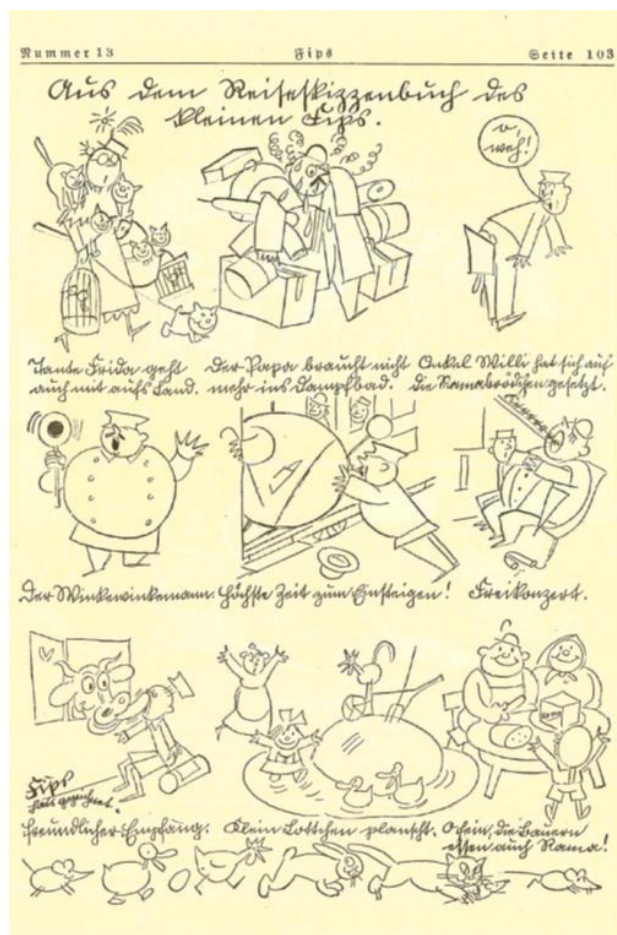 Nummer 13 Fips Seite 103
Aus dem Reiseskizzenbuch des
kleinen Fips.
O,
weh!
Tante Frida geht
auch mit aufs Land.
Der Papa braucht nicht
mehr ins Dampfbad.
Onkel Willi hat sich auf
die Ramabrödchen gesetzt.
Der Winkewinkemann.
Höchste Zeit zum Einsteigen!
Freikonzert.
Fips
hat gezeichnet.
Freundlicher Empfang.
Klein Lottchen planscht.
O fein, die Bauern
essen auch Rama!